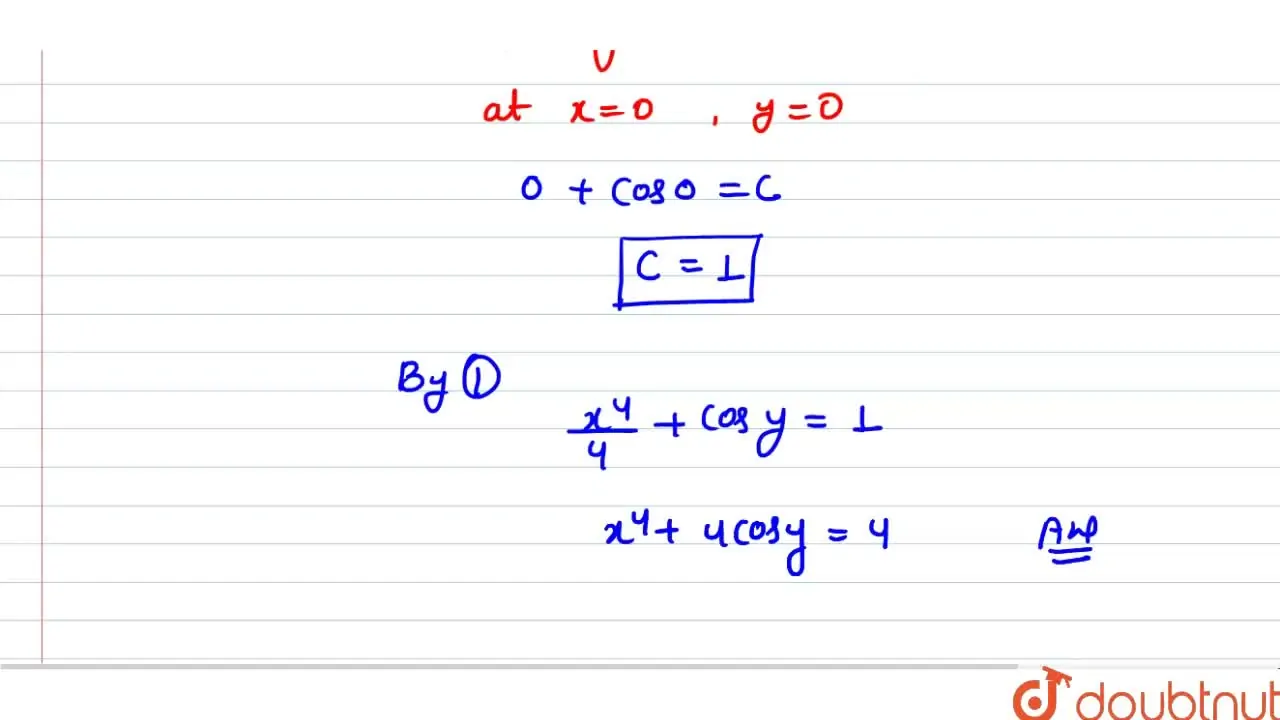 at x=0 , y=0
0 + cos 0 = C
C = 1
By ①
x⁴/4 + cos y = 1
x⁴ + 4cosy = 4 Ans
doubtnut